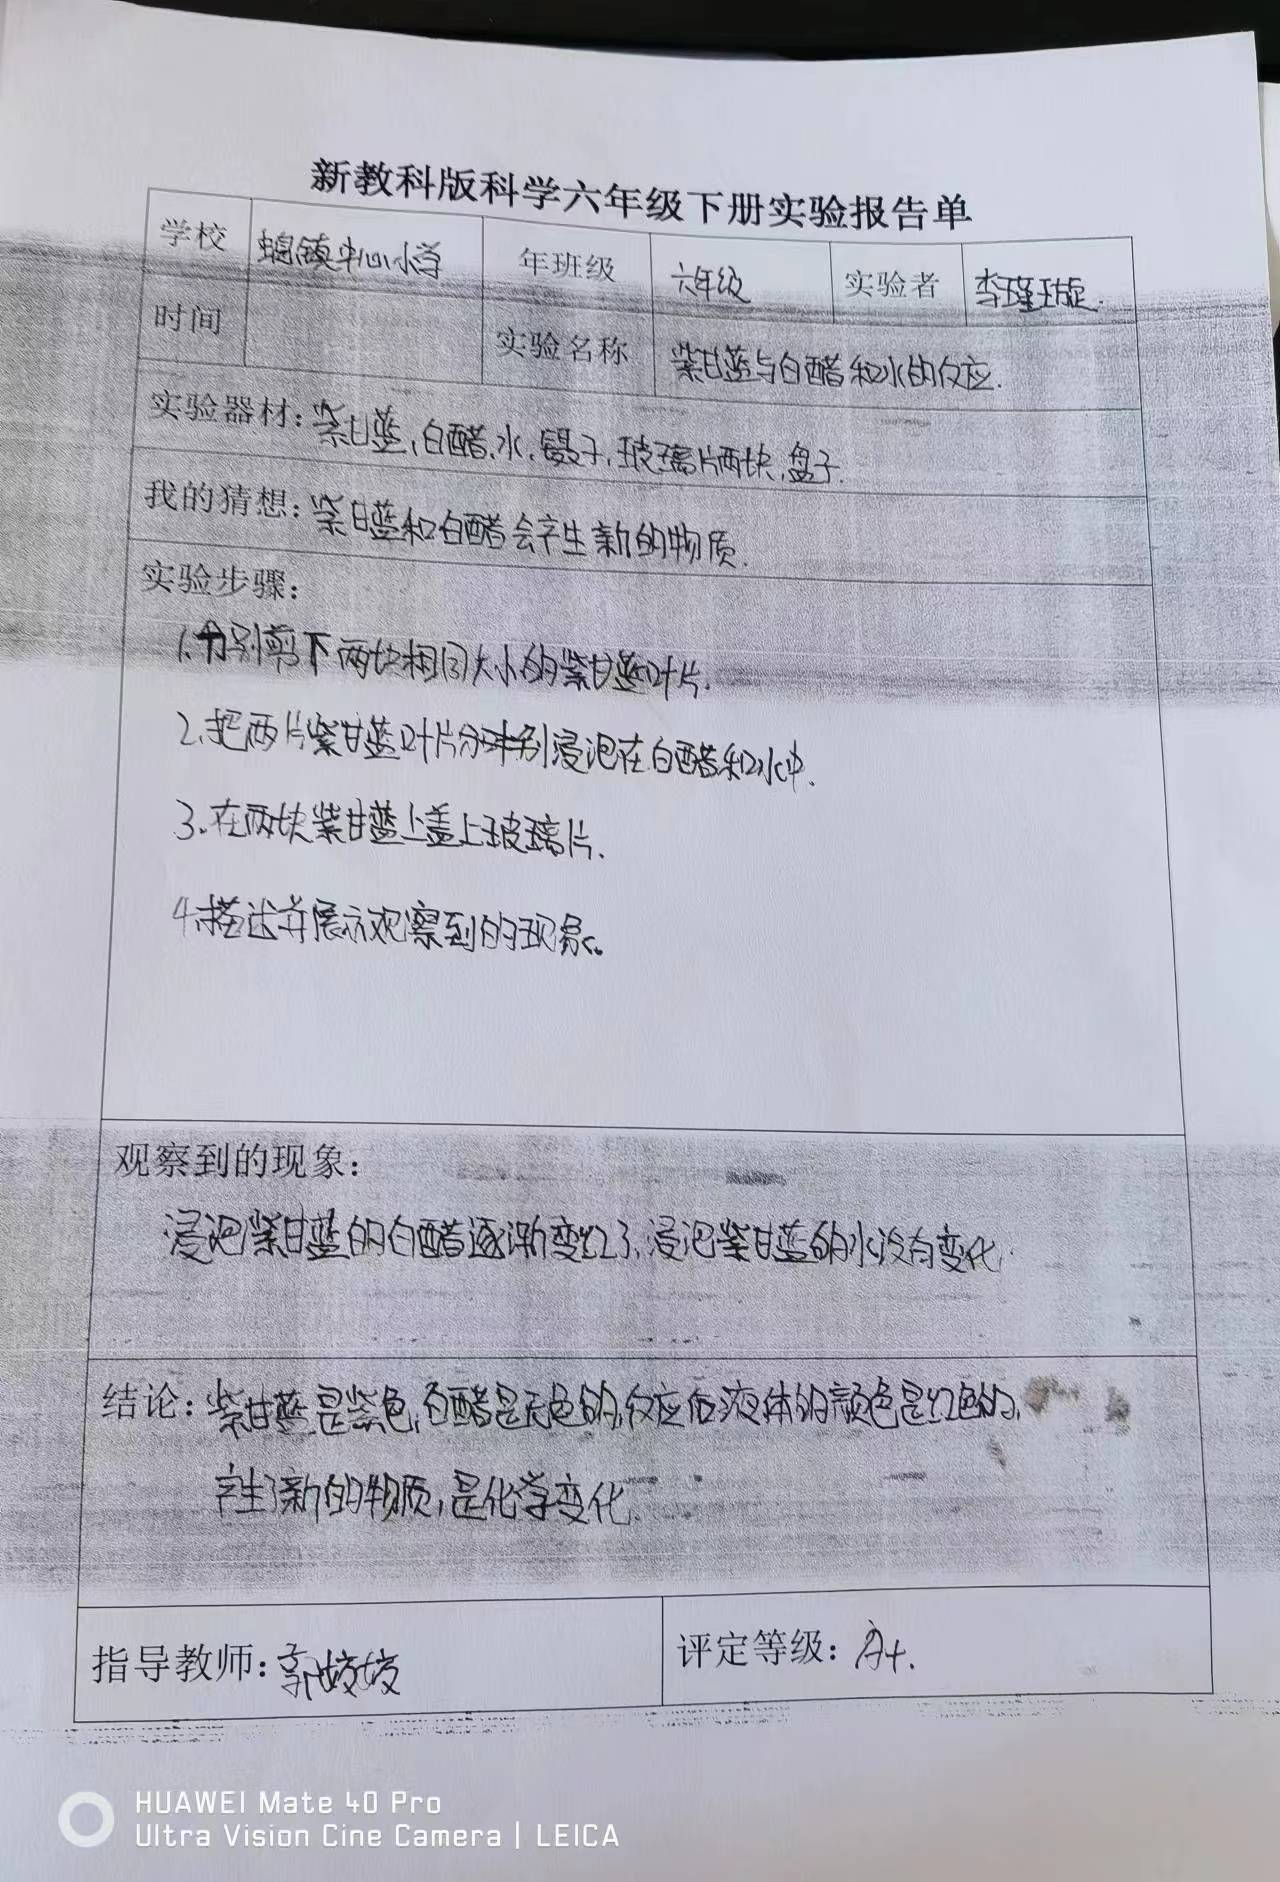 新教科版科学六年级下册实验报告单
学校 镇中心小学 年班级 六年级 实验者 李瑾璇.
时间 实验名称 紫甘蓝与白醋和水的反应.
实验器材：紫甘蓝,白醋.水.镊子,玻璃片两块,盘子.
我的猜想：紫甘蓝和白醋会产生新的物质.
实验步骤：
1.分别剪下两块相同大小的紫甘蓝叶片.
2.把两片紫甘蓝叶片分别浸泡在白醋和水中.
3.在两块紫甘蓝上盖上玻璃片.
4.描述并展示观察到的现象。
观察到的现象：
浸泡紫甘蓝的白醋逐渐变红了.浸泡紫甘蓝的水没有变化.
结论：紫甘蓝是紫色,白醋是无色的,反应后液体的颜色是红色的,
产生了新的物质,是化学变化.
指导教师：郭姣姣 评定等级：A+.
HUAWEI Mate 40 Pro
Ultra Vision Cine Camera | LEICA